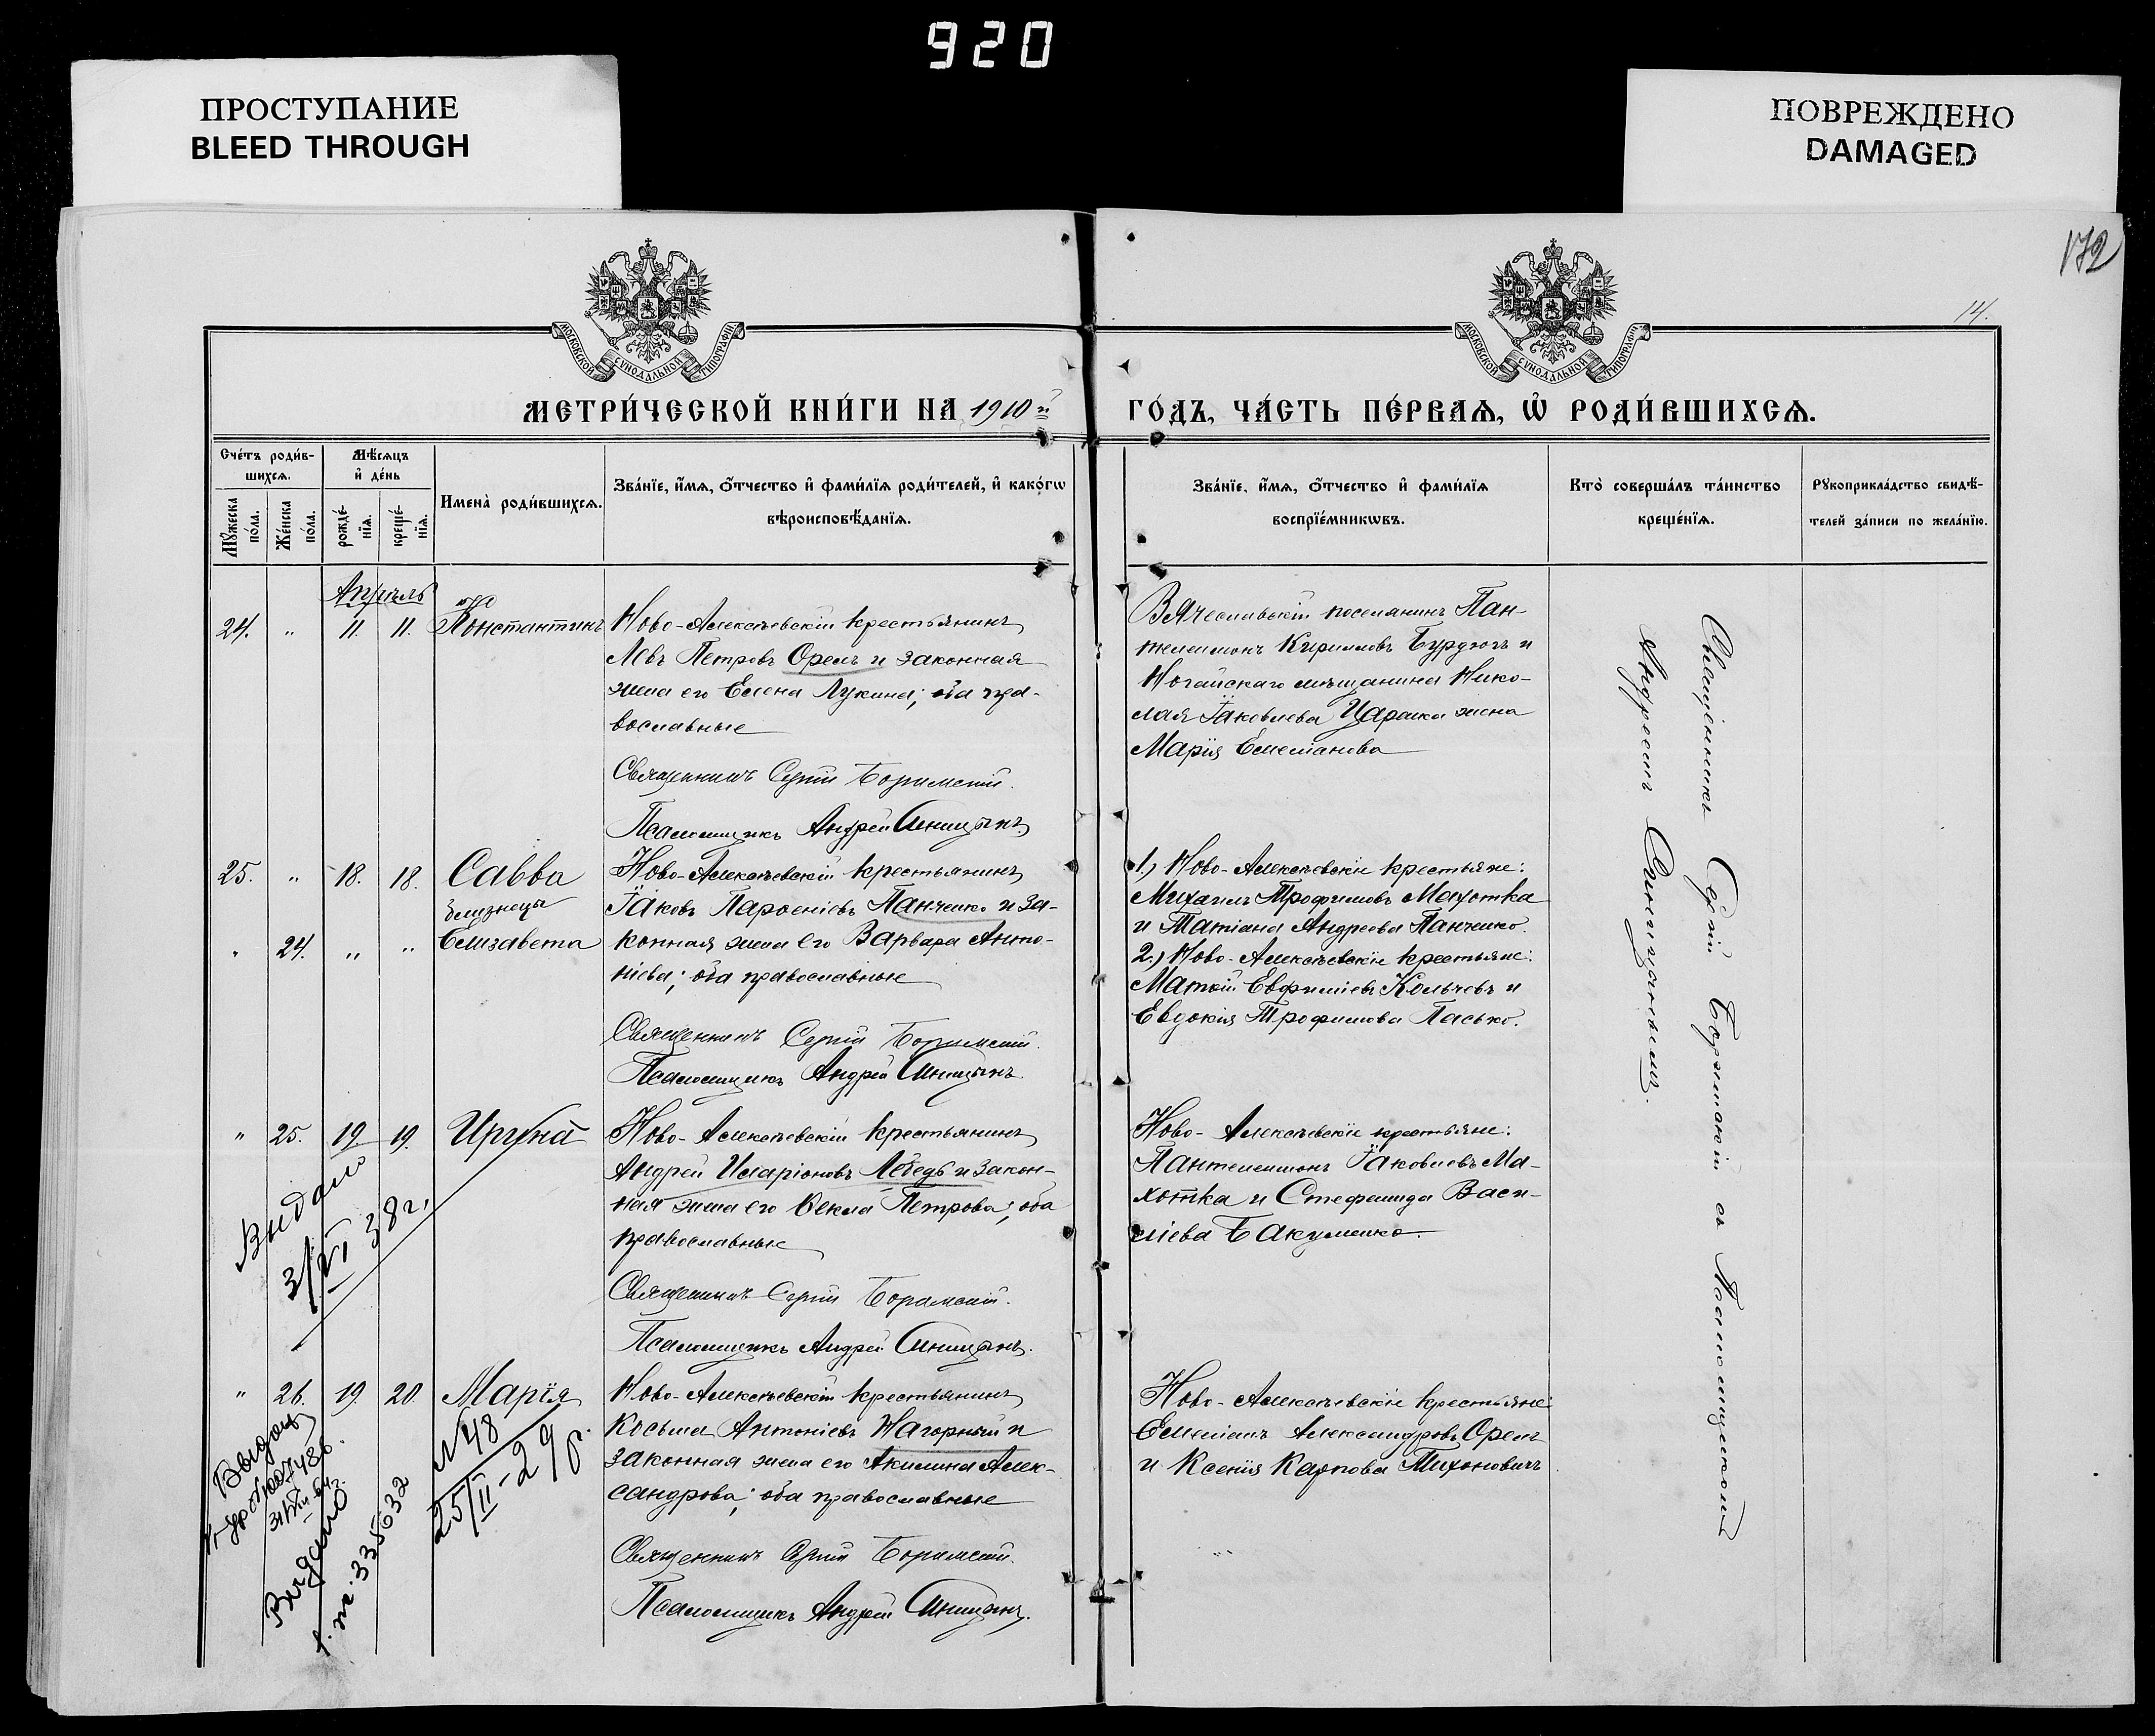 920
ПРОСТУПАНИЕ
BLEED THROUGH
ПОВРЕЖДЕНО
DAMAGED
172
14.
МОСКОВСКОЙ СѴНОДАЛЬНОЙ ТИПОГРАФІИ
МОСКОВСКОЙ СѴНОДАЛЬНОЙ ТИПОГРАФІИ
МЕТРИ́ЧЕСКОЙ КНИ́ГИ НА 1910й
ГО́ДЪ, ЧА́СТЬ ПЕ́РВАѦ, Ѡ҆ РОДИ́ВШИХСѦ.
Сче́тъ роди́в-
шихсѧ.
Мѣ́сѧцъ
и҆ де́нь
Мꙋ́жеска
по́ла.
Же́нска
по́ла.
рожде́-
нїѧ.
креще́-
нїѧ.
Имена̀ роди́вшихсѧ.
Зва́нїе, и҆́мѧ, ѻ҆́тчество и҆ фами́лїѧ роди́телей, и҆ како́гѡ
вѣроисповѣ́данїѧ.
Зва́нїе, и҆́мѧ, ѻ҆́тчество и҆ фами́лїѧ
воспрїе́мникѡвъ.
Кто̀ соверша́лъ та́инство
креще́нїѧ.
Рꙋкоприкла́дство свидѣ́-
телей за́писи по жела́нїю.
Апрѣль
24. " 11. 11. Константинъ
Ново-Алексѣевскій крестьянинъ
Левъ Петровъ Орелъ и законная
жена его Елена Лукина; оба пра-
вославные
Священникъ Сергій Боримскій.
Псаломщикъ Андрей Синицынъ.
Вячеславскій поселянинъ Пан-
телеимонъ Кирилловъ Бурдюгъ и
Ногайскаго мѣщанина Нико-
лая Іаковлева Царика жена
Марія Емеліанова
25. " 18. 18. Савва
близнецы
" 24. " " Елизавета
Ново-Алексѣевскій крестьянинъ
Іаковъ Парѳеніевъ Панченко и за-
конная жена его Варвара Анто-
ніева; оба православные
Священникъ Сергій Боримскій.
Псаломщикъ Андрей Синицынъ.
1.) Ново-Алексѣевскіе крестьяне:
Михаилъ Трофимовъ Махотка
и Татіана Андреева Панченко.
2.) Ново-Алексѣевскіе крестьяне:
Матѳій Евфиміевъ Кольчевъ и
Евдокія Трофимова Пасько.
" 25. 19. 19. Ирина
Ново-Алексѣевскій крестьянинъ
Андрей Иларіоновъ Лебедь и закон-
ная жена его Ѳекла Петрова; оба
православные
Священникъ Сергій Боримскій.
Псаломщикъ Андрей Синицынъ.
Ново-Алексѣевскіе крестьяне:
Пантелеимонъ Іаковлевъ Ма-
хотка и Стефанида Васи-
ліева Бакуменко.
Видано
3/VI 38г.
" 26. 19. 20 Марія
Ново-Алексѣевскій крестьянинъ
Косьма Антоніевъ Нагорный и
законная жена его Акилина Алек-
сандрова; оба православные
Священникъ Сергій Боримскій.
Псаломщикъ Андрей Синицынъ.
Ново-Алексѣевскіе крестьяне:
Емеліанъ Александровъ Орелъ
и Ксенія Карпова Тихоновичъ
№48
25/II-29р.
Видано
335632
Священникъ Сергій Боримскій съ Псаломщикомъ
Андреемъ Синицынымъ.